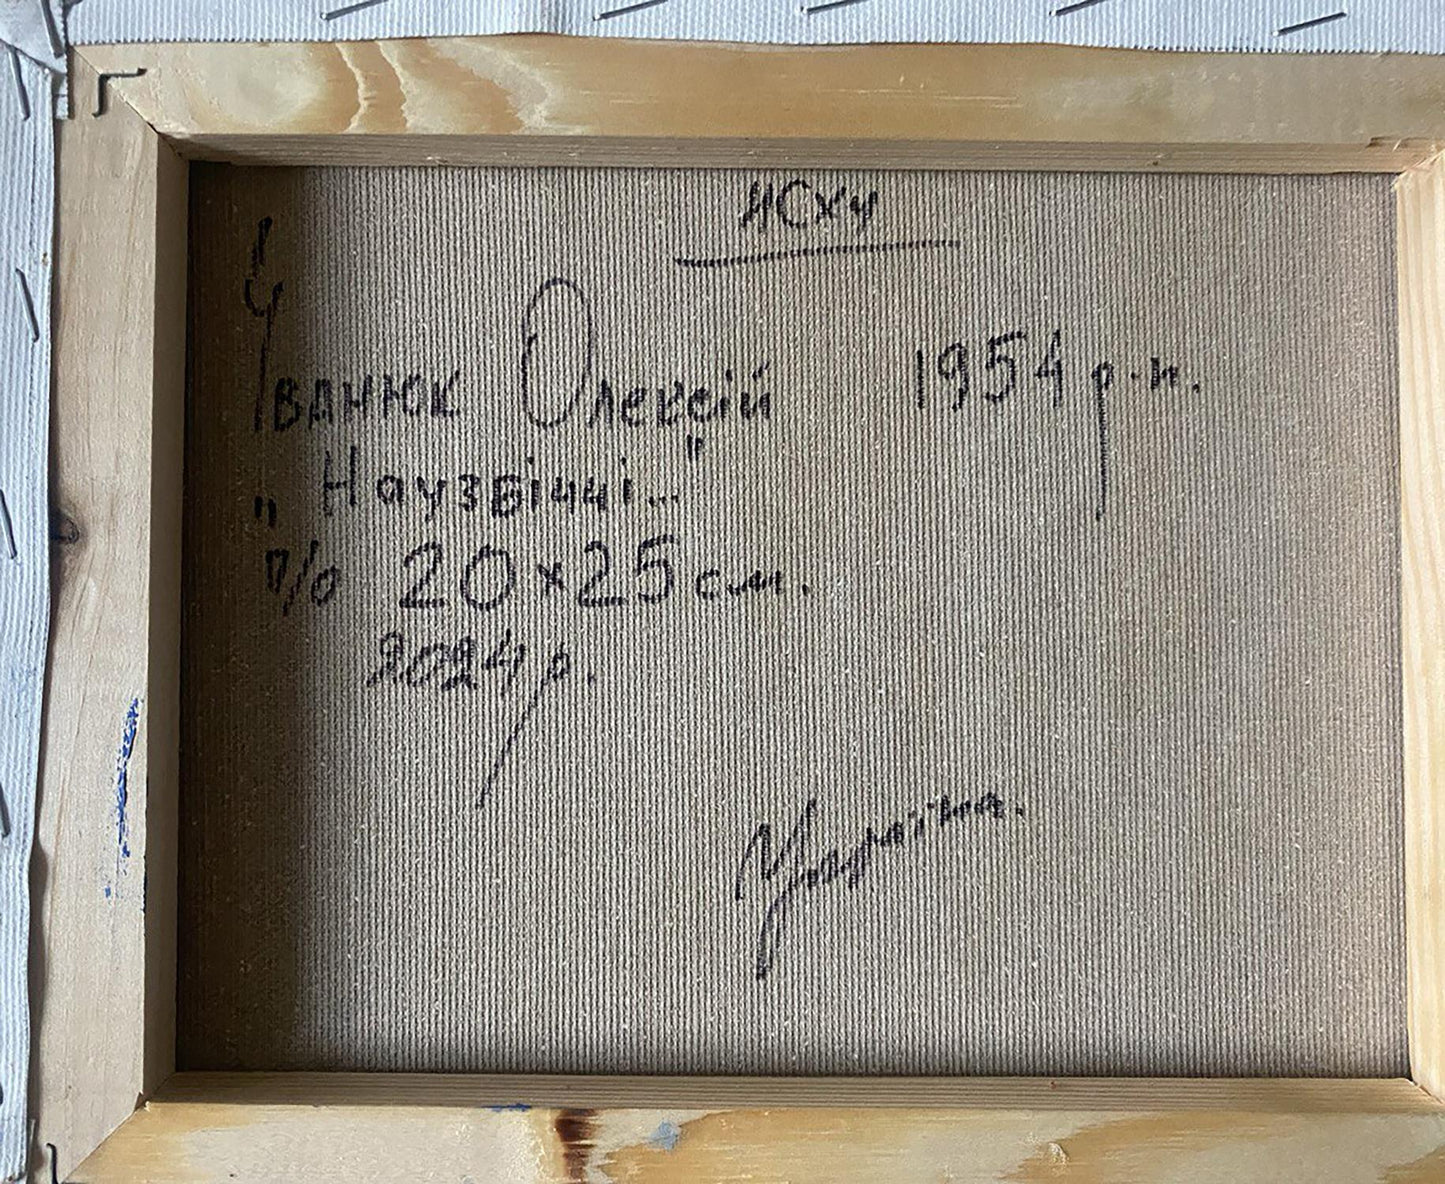 НСХУ
Іванюк Олексій 1954 р.н.
„Наузбіччі..."
п/о 20×25 см.
2024 р.
Україна.